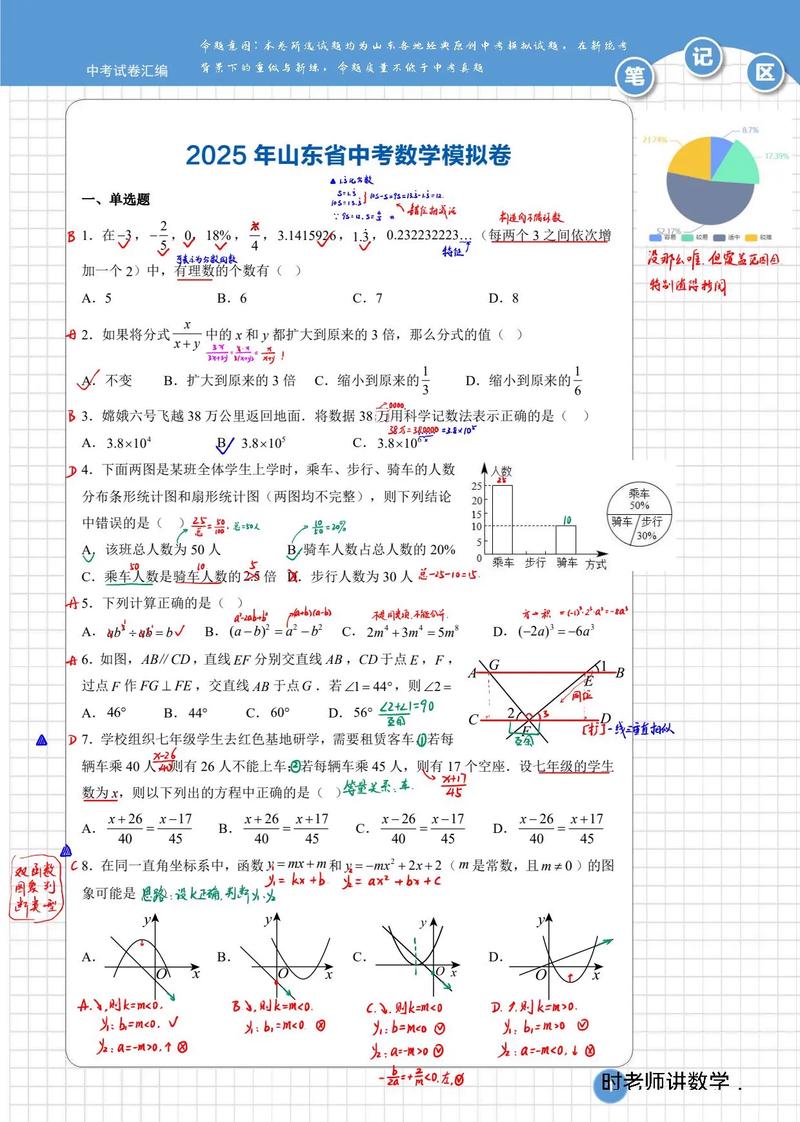 命题意图：本卷所选试题均为山东各地经典原创中考模拟试题，在新统考
中考试卷汇编
背景下的重做与新练，命题质量不低于中考真题
笔 记 区
2025 年山东省中考数学模拟卷
21.74% 8.7%
17.39%
52.17%
容易 较易 适中 较难
没那么难，但覆盖范围
特别值得拷问
一、单选题
▲ 1.3化分数
S=1.3
10S=13.3
10S-S=9S=13.3-1.3=12.
∵9S=12, S=4/3
错位相减法
构造的不循环数
B 1．在−3，−2/5，0，18%，π/4，3.1415926，1.3，0.232232223…（每两个 3 之间依次增
可表示为分数的数
特征
加一个 2）中，有理数的个数有（ ）
A．5 B．6 C．7 D．8
A 2．如果将分式 x/(x+y) 中的 x 和 y 都扩大到原来的 3 倍，那么分式的值（ ）
3x/(3x+3y)=3·x/3(x+y)=x/(x+y) !
A．不变 B．扩大到原来的 3 倍 C．缩小到原来的 1/3 D．缩小到原来的 1/6
0000
B 3．嫦娥六号飞越 38 万公里返回地面．将数据 38 万用科学记数法表示正确的是（ ）
38万=380000=3.8×10⁵
A．3.8×10⁴ B．3.8×10⁵ C．3.8×10⁶
D 4．下面两图是某班全体学生上学时，乘车、步行、骑车的人数
分布条形统计图和扇形统计图（两图均不完整），则下列结论
中错误的是（ ）
25/总=50/100，总=50人
10/50=20%
A．该班总人数为 50 人 B．骑车人数占总人数的 20%
50 10 5
C．乘车人数是骑车人数的 2.5 倍 D．步行人数为 30 人 总-25-10=15.
人数
25
20
15
10
5
0
25
10
乘车 步行 骑车 方式
乘车
50%
骑车 步行
30%
A 5．下列计算正确的是（ ）
a²-2ab+b²
(a+b)(a-b)
不是同类项，不能合并.
=(-1)³·2³·a³=-8a³
A．ab³÷ab²=b B．(a−b)²=a²−b² C．2m⁴+3m⁴=5m⁸ D．(−2a)³=−6a³
A 6．如图，AB∥CD，直线 EF 分别交直线 AB，CD 于点 E，F，
过点 F 作 FG⊥FE，交直线 AB 于点 G．若∠1=44°，则∠2=
A．46° B．44° C．60° D．56°
∠2+∠1=90
互余
A G 1 B
E
同位
C 2 3 D
F
互余
一线三垂直相似
D 7．学校组织七年级学生去红色基地研学，需要租赁客车①若每
x-26/40
辆车乘 40 人，则有 26 人不能上车；②若每辆车乘 45 人，则有 17 个空座．设七年级的学生
x+17/45
数为 x，则以下列出的方程中正确的是（ ）
等量关系：车.
A．(x+26)/40=(x−17)/45 B．(x+26)/40=(x+17)/45 C．(x−26)/40=(x−17)/45 D．(x−26)/40=(x+17)/45
双函数
图象判
断类型
C 8．在同一直角坐标系中，函数 y₁=mx+m 和 y₂=−mx²+2x+2（m 是常数，且 m≠0）的图
y₁=kx+b y₂=ax²+bx+c
象可能是 思路：设k正确，判断y₁、y₂
A． B． C． D．
y O x
y O x
y O x
y O x
A.↘,则k=m<0. B↘,则k=m<0. C.↘.则k=m<0 D.↑.则k=m>0.
y₁:b=m<0. √ y₁:b₁=m<0 y₁:b=m<0 y₁:b₁=m>0
y₂:a=-m>0.↑ y₂:a=-m>0 y₂:a=-m<0.↓
-b/2a=+2/m<0.左,
时老师讲数学．